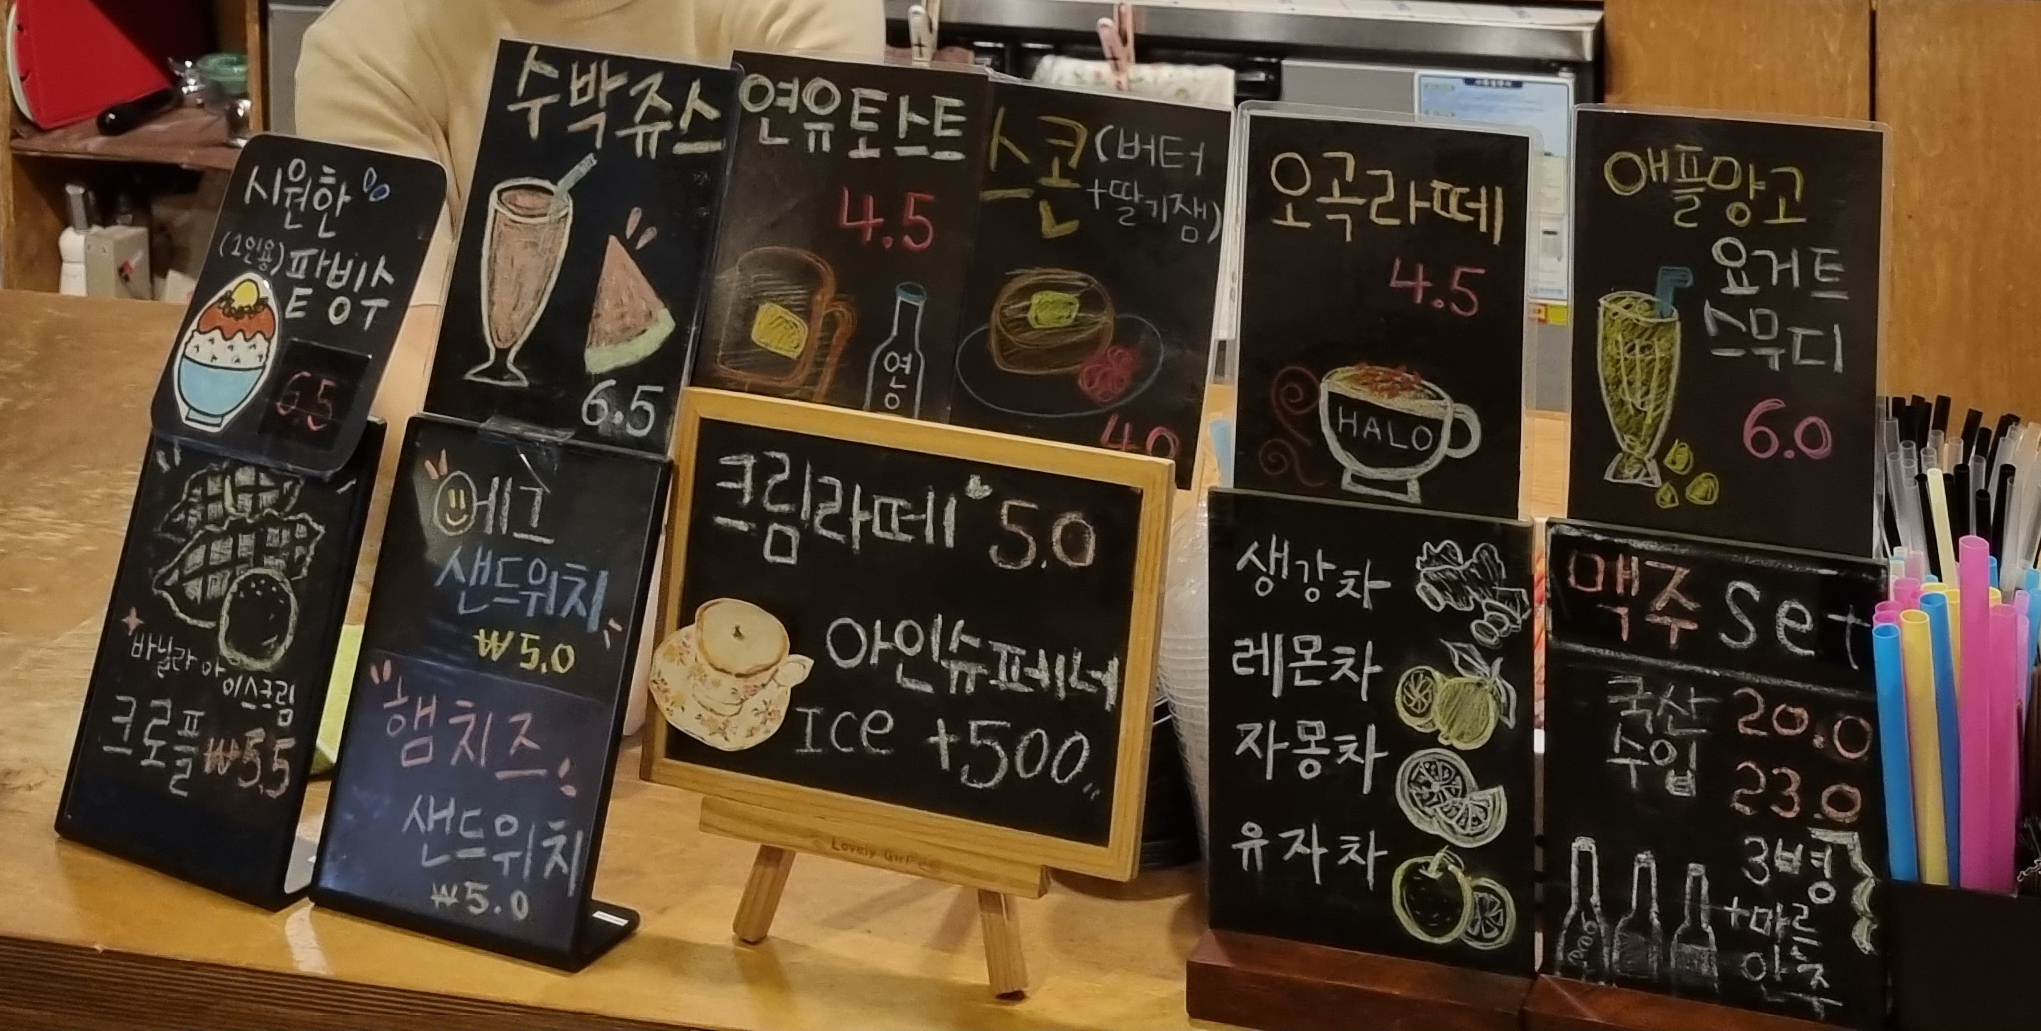 시원한
(1인용) 팥빙수
6.5
수박쥬스
6.5
연유토스트
4.5
연유
스콘 (버터
+딸기잼)
4.0
오곡라떼
4.5
HALO
애플망고
요거트
스무디
6.0
바닐라아이스크림
크로플 ₩5.5
에그
샌드위치
₩5.0
"햄치즈"
샌드위치
₩5.0
크림라떼 5.0
아인슈페너
Ice +500"
Lovely Girl
생강차
레몬차
자몽차
유자차
맥주 Set
국산 20.0
수입 23.0
3병
+마른
안주